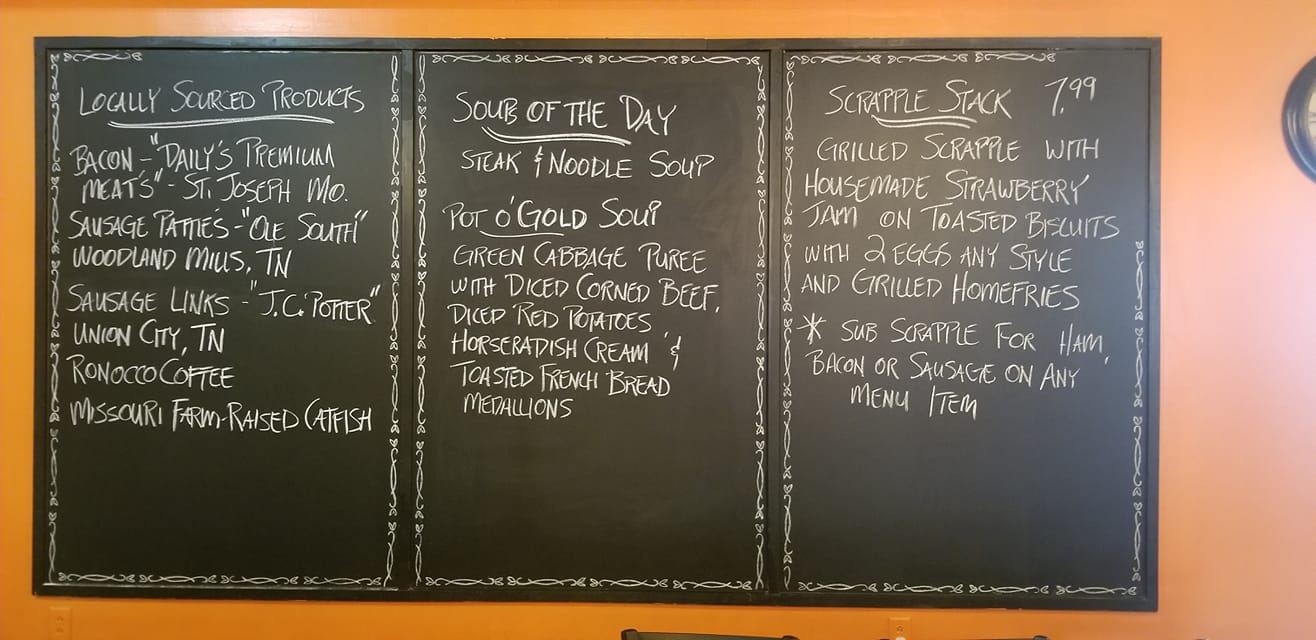 LOCALLY SOURCED PRODUCTS
BACON - "DAILY'S PREMIUM
MEAT'S" - ST. JOSEPH MO.
SAUSAGE PATTIES - "OLE SOUTH"
WOODLAND MILLS, TN
SAUSAGE LINKS - "J.C. POTTER"
UNION CITY, TN
RONOCCO COFFEE
MISSOURI FARM-RAISED CATFISH
SOUPS OF THE DAY
STEAK & NOODLE SOUP
POT O' GOLD SOUP
GREEN CABBAGE PUREE
WITH DICED CORNED BEEF,
DICED RED POTATOES
HORSERADISH CREAM &
TOASTED FRENCH BREAD
MEDALLIONS
SCRAPPLE STACK 7.99
GRILLED SCRAPPLE WITH
HOUSEMADE STRAWBERRY
JAM ON TOASTED BISCUITS
WITH 2 EGGS ANY STYLE
AND GRILLED HOMEFRIES
* SUB SCRAPPLE FOR HAM,
BACON OR SAUSAGE ON ANY
MENU ITEM